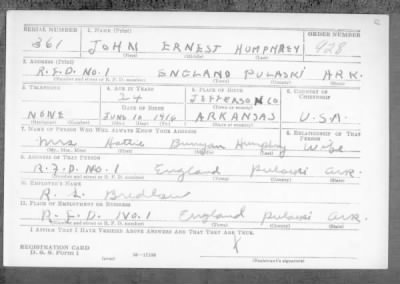 SERIAL NUMBER 1. NAME (Print) ORDER NUMBER
361 JOHN ERNEST HUMPHREY 928
(First) (Middle) (Last)
2. ADDRESS (Print)
R.F.D. NO. 1 ENGLAND PULASKI ARK.
(Number and street or R. F. D. number) (Town) (County) (State)
3. TELEPHONE 4. AGE IN YEARS 5. PLACE OF BIRTH 6. COUNTRY OF CITIZENSHIP
24 JEFFERSON CO
DATE OF BIRTH (Town or county)
NONE JUNE 10, 1916 ARKANSAS U.S.A.
(Exchange) (Number) (Mo.) (Day) (Yr.) (State or country)
7. NAME OF PERSON WHO WILL ALWAYS KNOW YOUR ADDRESS 8. RELATIONSHIP OF THAT PERSON
Mrs Hattie Humphry Wife
(Mr., Mrs., Miss) (First) (Middle) (Last)
9. ADDRESS OF THAT PERSON
R.F.D. NO. 1 England Pulaski Ark
(Number and street or R. F. D. number) (Town) (County) (State)
10. EMPLOYER'S NAME
R. L.
11. PLACE OF EMPLOYMENT OR BUSINESS
R.F.D. NO. 1 England Pulaski Ark.
(Number and street or R. F. D. number) (Town) (County) (State)
I AFFIRM THAT I HAVE VERIFIED ABOVE ANSWERS AND THAT THEY ARE TRUE.
X
REGISTRATION CARD
D. S. S. Form 1 (over) (Registrant's signature)